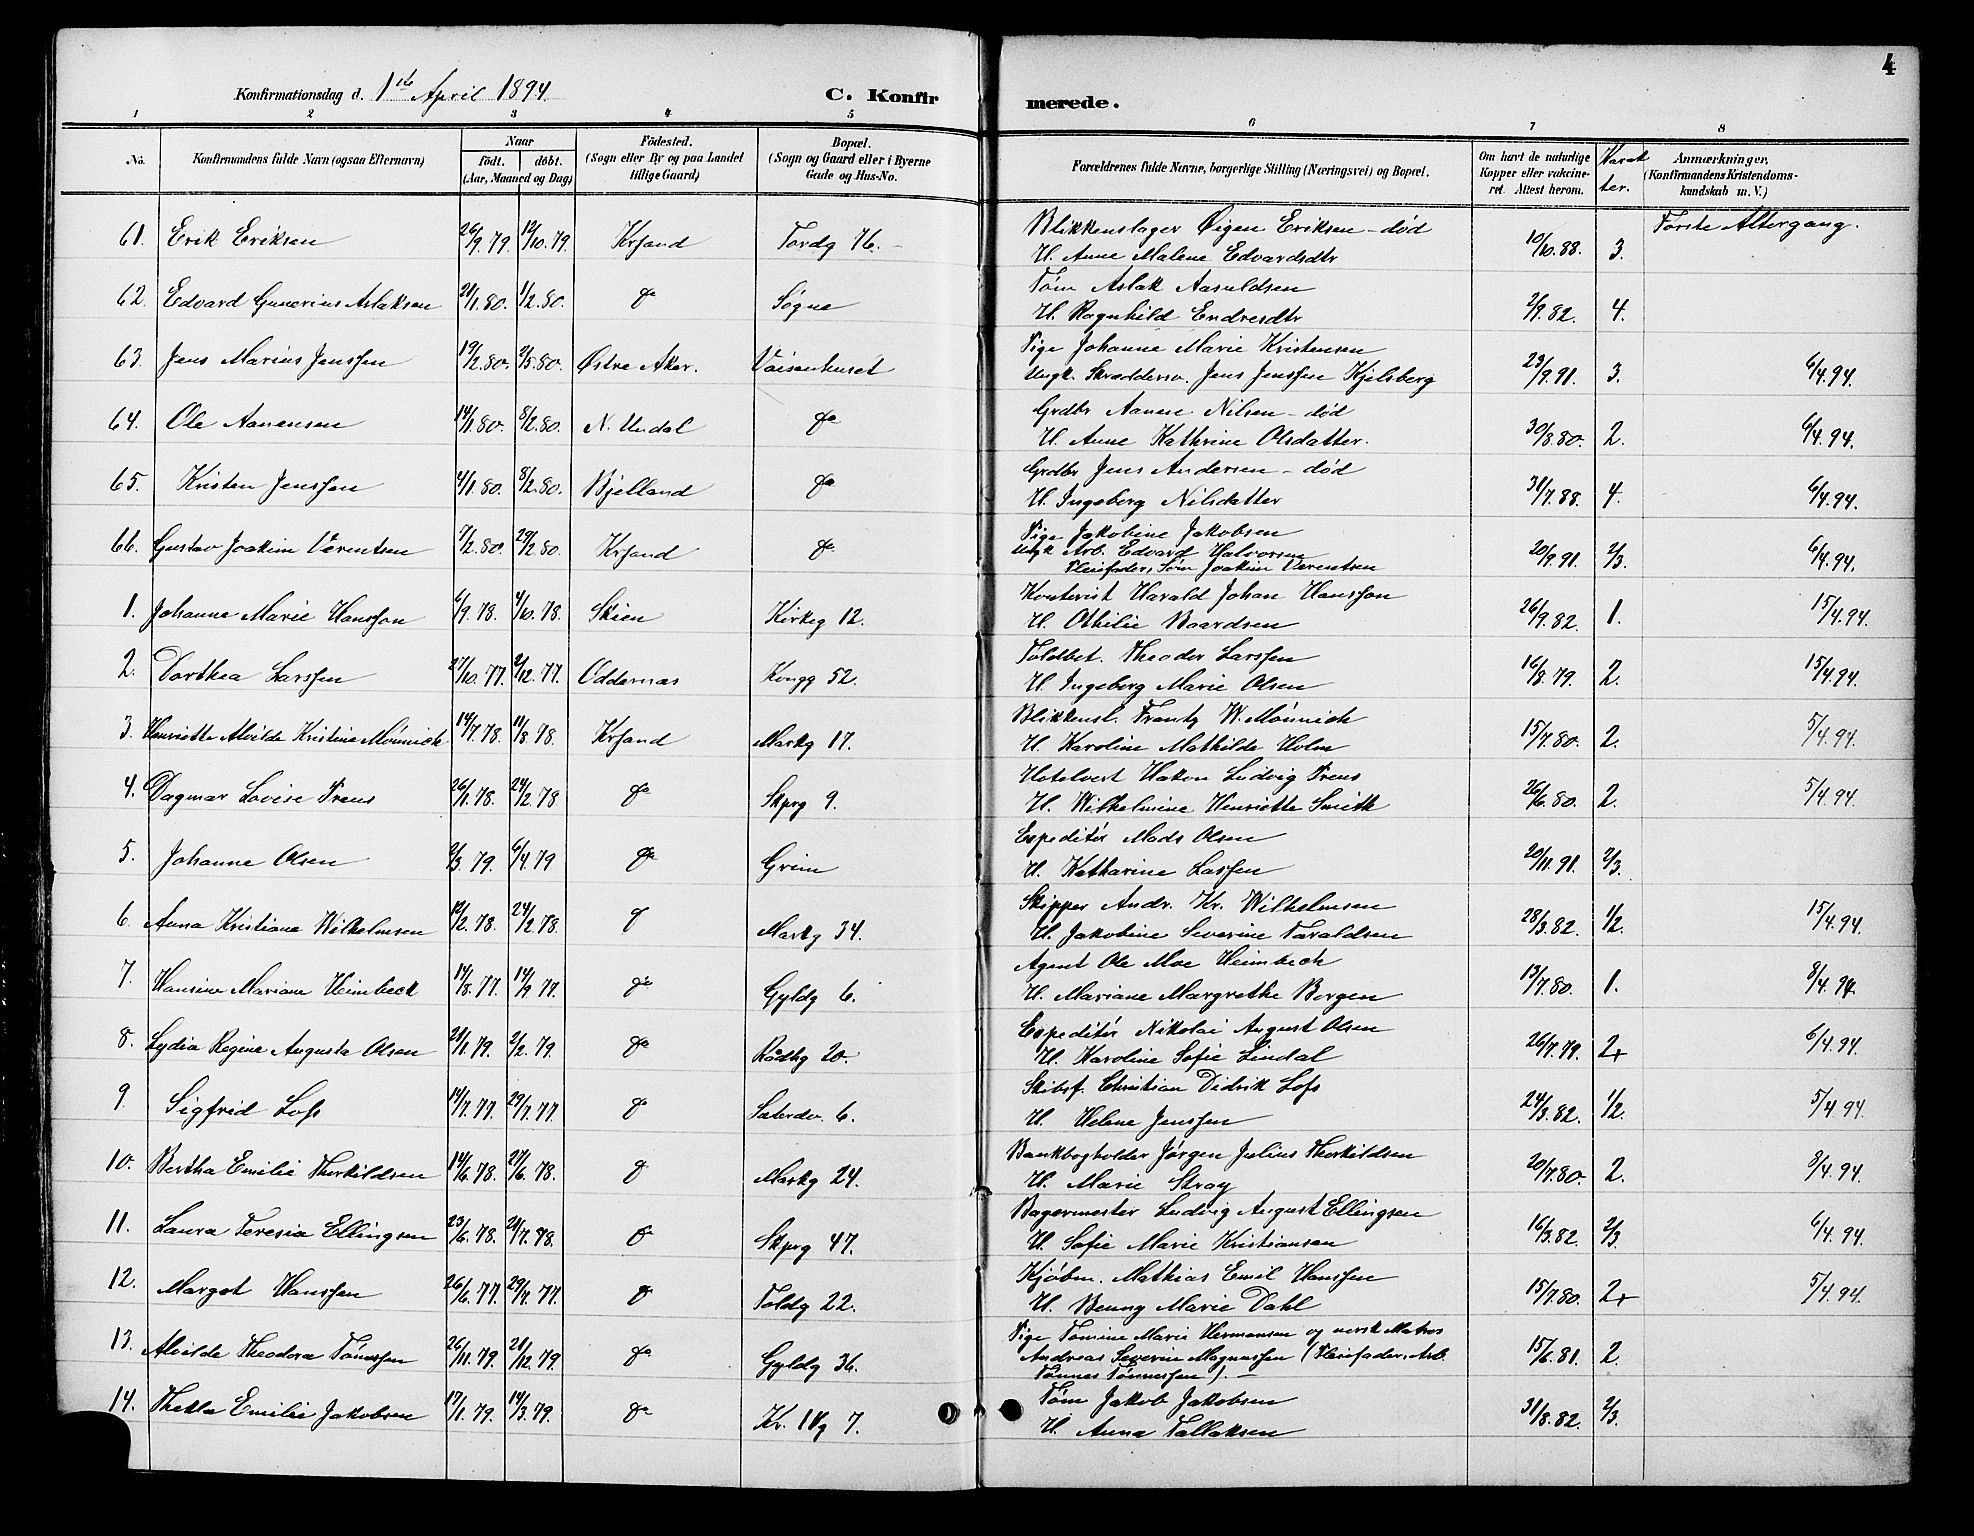 4
Konfirmationsdag d. 1ste April 1894
C. Konfirmerede.
1 2 3 4 5 6 7 8
No.
Konfirmandens fulde Navn (ogsaa Efternavn)
Naar
født. døbt.
(Aar, Maaned og Dag)
Fødested.
(Sogn eller By og paa Landet
tillige Gaard)
Bopæl.
(Sogn og Gaard eller i Byerne
Gade og Hus-No.
Forældrenes fulde Navne, borgerlige Stilling (Næringsvei) og Bopæl.
Om havt de naturlige
Kopper eller vakcine-
ret. Attest herom.
Karak
ter.
Anmærkninger.
(Konfirmandens Kristendoms-
kundskab m. V.)
Første Altergang.
61. Erik Eriksen 26/9.79. 12/10.79. Krsand Tordg 76. Blikkenslager Øigen Eriksen - død
H. Anne Malene Edvardsdtr 10/10.88. 3.
62. Edvard Gunerius Aslaksen 21/1.80. 1/2.80. do Søgne Tøm Aslak Aasuldsen
H. Ragnhild Endresdtr 2/9.82. 4.
63. Jens Marius Jenssen 19/2.80. 2/5.80. Østre Aker. Vaisenhuset Pige Johanne Marie Kristensen
Ungk. Skræddersv. Jens Jenssen Kjelsberg 23/9.91. 3. 6/4.94.
64. Ole Aanensen 14/1.80. 8/2.80. N. Undal do Grdbr Aanen Nilsen - død
H. Anne Kathrine Olsdatter. 30/8.80. 2. 6/4.94.
65. Kristen Jenssen 4/1.80. 8/2.80. Bjelland do Grdbr Jens Andersen - død
H. Ingeborg Nilsdatter 31/7.88. 4. 6/4.94.
66. Gustav Joakim Verentsen 7/2.80. 29/2.80. Krsand do Pige Jakobine Jakobsen
Ungk Arb. Edvard Halvorsen
Pleiefader, Søm Joakim Verentsen 20/9.91. 2/3. 6/4.94.
1. Johanne Marie Hanssen 6/9.78. 4/10.78. Skien Kirkeg 12. Kontorist Harald Johan Hanssen
H. Othilie Baardsen 26/9.82. 1. 15/4.94.
2. Dorthea Larssen 27/10.77. 2/12.77. Oddernæs Kongg 52. Toldbet. Theodor Larssen
H. Ingeborg Marie Olsen 16/8.79. 2. 15/4.94.
3. Henriette Alvilde Kristine Mønnich 14/7.78. 11/8.78. Krsand Markg 17. Blikkensl. Frantz W. Mønnich
H. Karoline Mathilde Holm 15/7.80. 2. 5/4.94.
4. Dagmar Lovise Prens 26/1.78. 24/2.78 do Skprg 9. Hotelvert Hakon Ludvig Prens
H. Wilhelmine Henriette Smith 26/6.80. 2. 5/4.94.
5. Johanne Olsen 2/3.79. 6/4.79 do Grim Expeditør Mads Olsen
H. Katharine Lassen 20/11.91. 2/3.
6. Anna Kristiane Wilhelmsen 12/2.78. 24/2.78. do Markg 34. Skipper Andr. Kr. Wilhelmsen
H. Jakobine Severine Taraldsen 28/3.82. 1/2. 15/4.94.
7. Hansine Mariane Heimbeck 14/8.77. 14/9.77. do Gyldg 6. Agent Ole Moe Heimbeck
H. Mariane Margrethe Borgen 13/7.80. 1. 8/4.94.
8. Lydia Regine Augusta Olsen 21/1.79. 2/2.79. do Raadhg 20. Expeditør Nikolai August Olsen
H. Karoline Sofie Lindal 26/7.79. 2+ 6/4.94.
9. Sigfrid Lofs 14/7.77. 29/7.77. do Sæterdv. 6. Skibsf. Christian Didrik Lofs
H. Helene Jenssen 24/3.82. 1/2. 5/4.94.
10. Bertha Emilie Thorkildsen 14/6.78. 27/6.78. do Markg 24. Bankbogholder Jørgen Julius Thorkildsen
H. Marie Stray 20/7.80. 2. 8/4.94.
11. Laura Teresia Ellingsen 23/6.78. 21/7.78. do Skprg 47. Bagermester Ludvig August Ellingsen
H. Sofie Marie Kristiansen 16/3.82. 2/3. 6/4.94.
12. Margot Hanssen 26/6.77. 29/7.77. do Toldg 22. Kjøbm. Mathias Emil Hanssen
H. Benny Marie Dahl 15/7.80. 2+ 5/4.94.
13. Alvilde Theodora Tønnessen 26/11.79. 21/12.79. do Gyldg 36. Pige Tomine Marie Hermansen og norsk Matros
Andreas Severin Magnussen (Pleiefader, Arb.
Tønnes Tønnessen). - 15/6.81. 2.
14. Thekla Emilie Jakobsen 17/1.79. 14/3.79. do Kr. IVg 7. Tøm Jakob Jakobsen
H. Anna Tallaksen 31/8.82. 2/3.